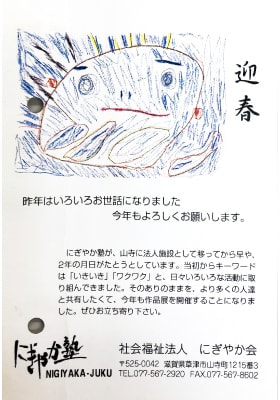 迎春
昨年はいろいろお世話になりました
今年もよろしくお願いします。
にぎやか塾が、山寺に法人施設として移ってから早や、
2年の月日がたとうとしています。当初からキーワード
は「いきいき」「ワクワク」と、日々いろいろな活動に取
り組んできました。そのありのままを、より多くの人達
と共有したくて、今年も作品展を開催することになりま
した。ぜひお立ち寄り下さい。
にぎやか塾
NIGIYAKA-JUKU
社会福祉法人 にぎやか会
〒525-0042 滋賀県草津市山寺町1215番3
TEL.077-567-2920 FAX.077-567-8602